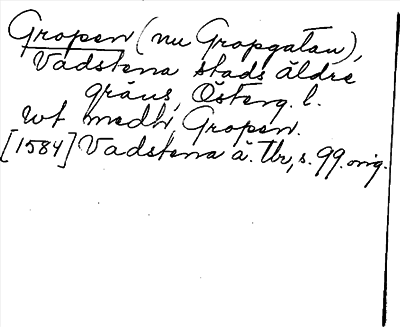 Gropen (nu Gropgatan),
Vadstena stads äldre
gräns, Österg. l.
wt medh Gropen.
[1584] Vadstena ä. Tb, s. 99. orig.